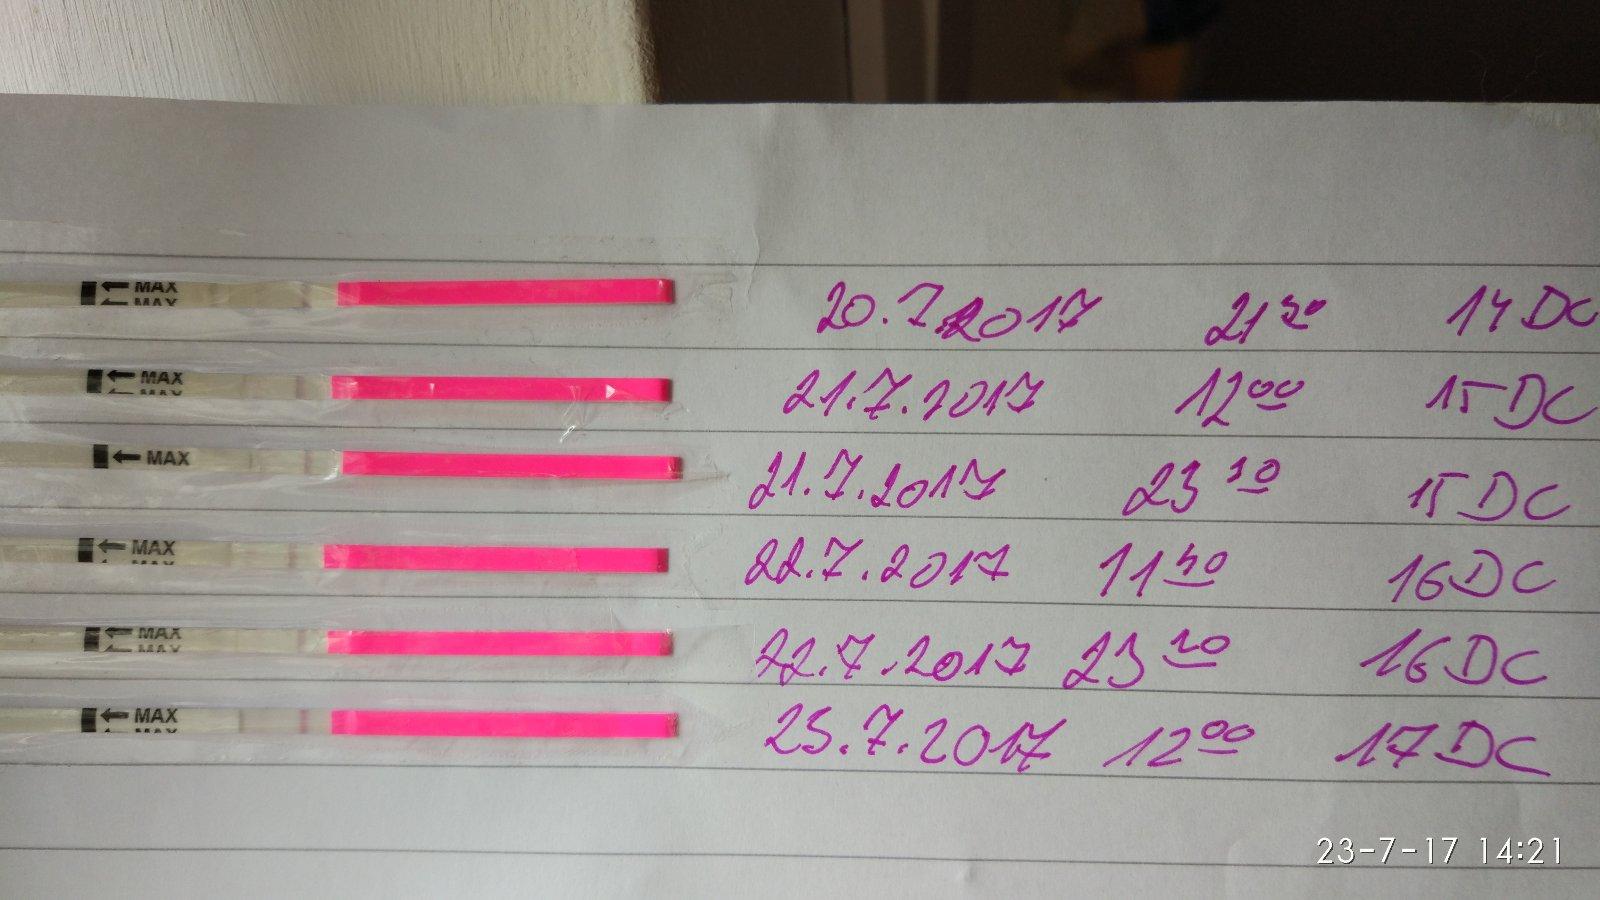 MAX 20.7.2017 21 30 14 DC
MAX
MAX 21.7.2017 12 00 15 DC
MAX 21.7.2017 23 10 15 DC
MAX 22.7.2017 11 40 16 DC
MAX 22.7.2017 23 20 16 DC
MAX
MAX 23.7.2017 12 00 17 DC
23-7-17 14:21